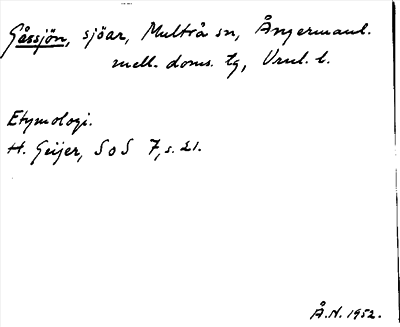 Gåssjön, sjöar, Multrå sn, Ångermanl.
mell. doms. tg, Vnl. l.
Etymologi.
H. Geijer, SoS 7, s. 21.
Å.N. 1952.